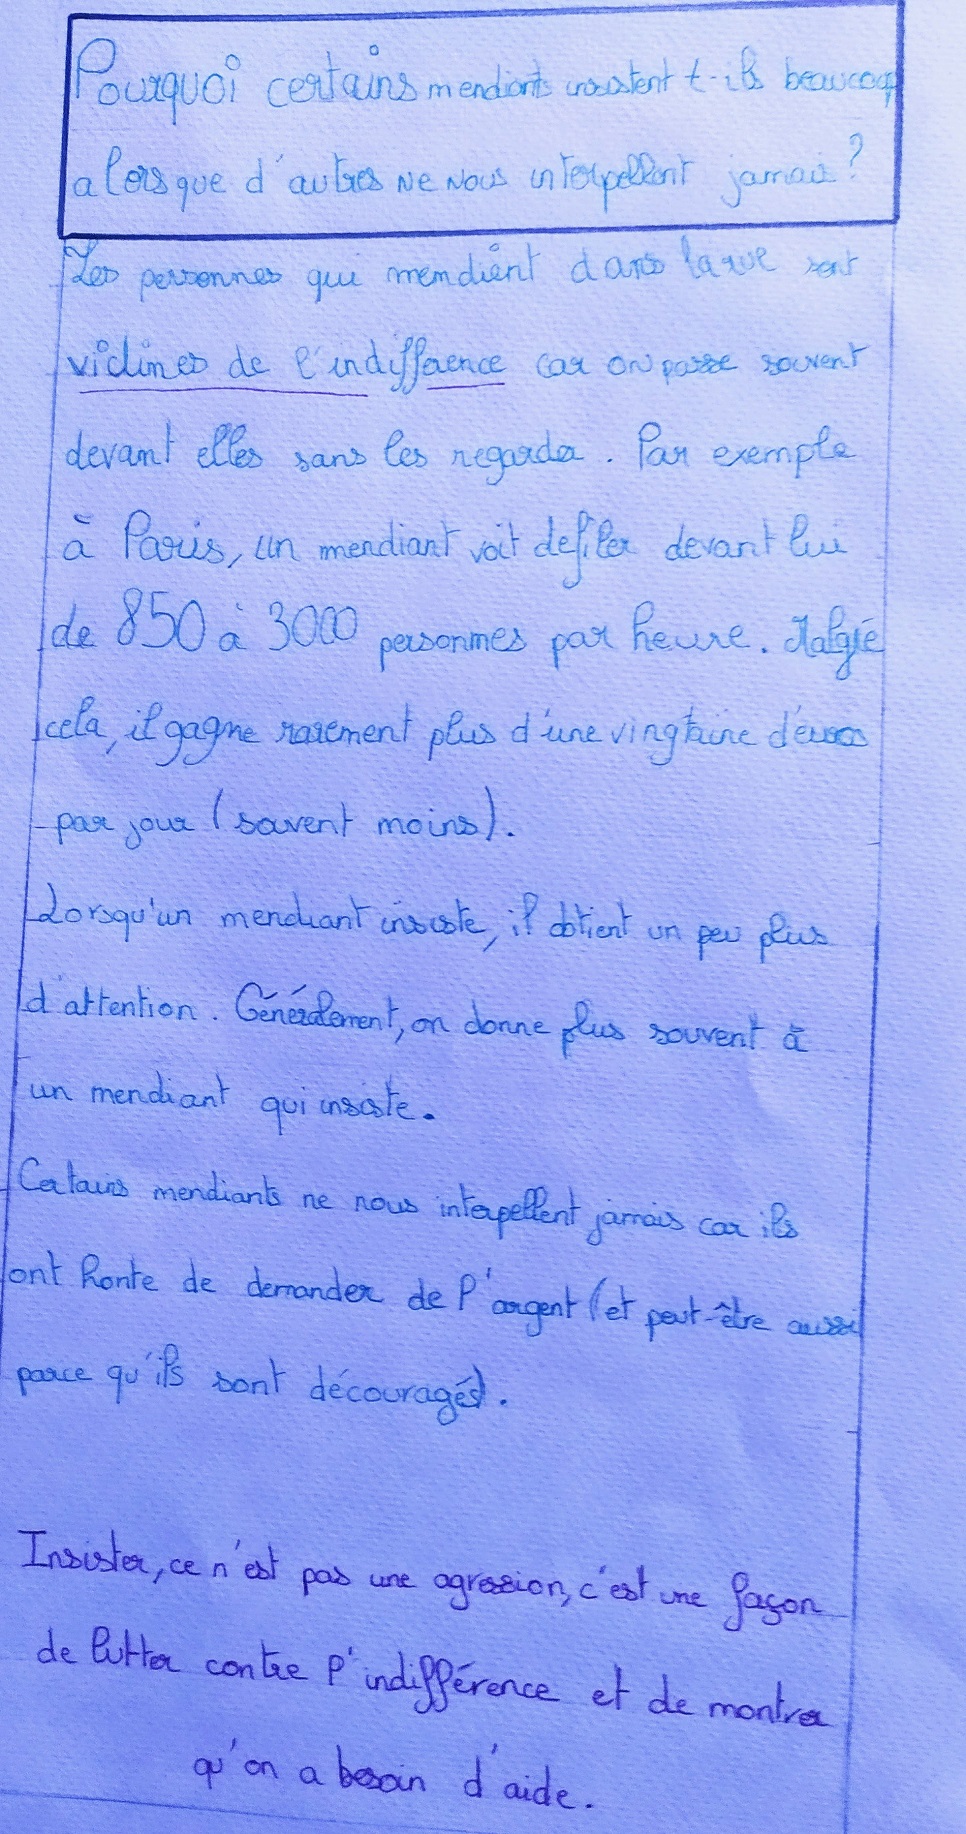 Pourquoi certains mendiants insistent t-ils beaucoup
alors que d'autres ne nous interpellent jamais?
Les personnes qui mendient dans la rue sont
victimes de l'indifférence car on passe souvent
devant elles sans les regarder. Par exemple
à Paris, un mendiant voit defiler devant lui
de 850 à 3000 personnes par heure. Malgré
cela, il gagne rarement plus d'une vingtaine d'euros
par jour (souvent moins).
Lorsqu'un mendiant insiste, il obtient un peu plus
d'attention. Généralement, on donne plus souvent à
un mendiant qui insiste.
Certains mendiants ne nous interpellent jamais car ils
ont honte de demander de l'argent (et peut-être aussi
parce qu'ils sont découragés).
Insister, ce n'est pas une agression, c'est une façon
de lutter contre l'indifférence et de montrer
qu'on a besoin d'aide.